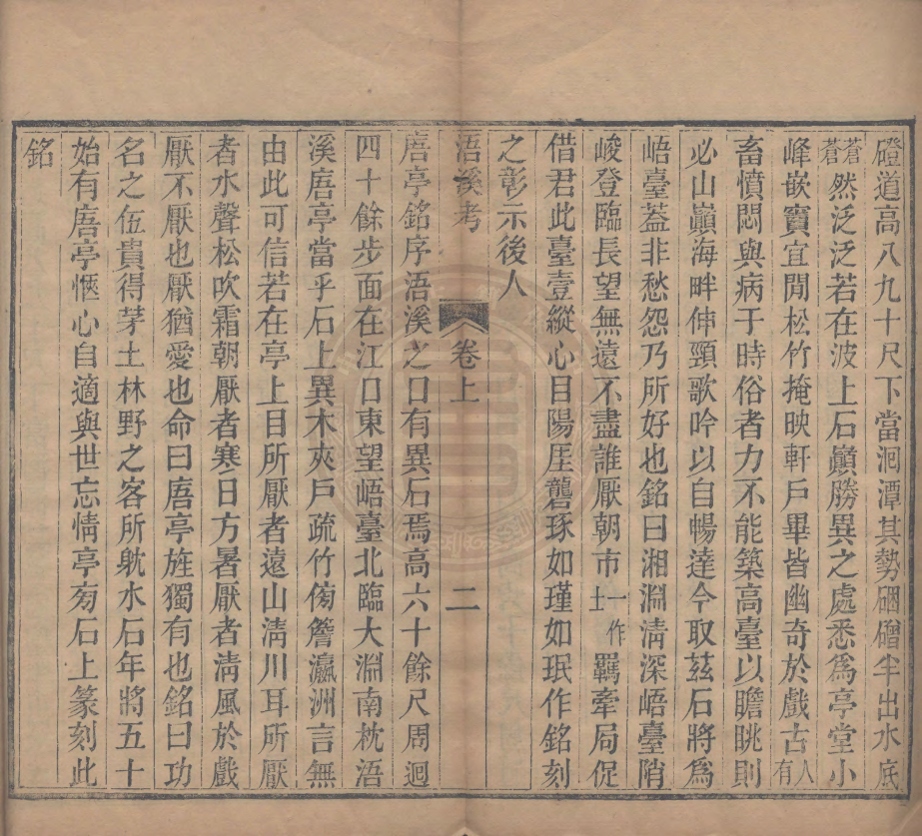 磴道高八九十尺下當洄潭其勢硱磳半出水底
蒼蒼然泛泛若在波上石巔勝異之處悉爲亭堂小
峰嵌竇宜閒松竹掩映軒戶畢皆幽奇於戲古有人
畜憤悶與病于時俗者力不能築高臺以瞻眺則
必山巔海畔伸頸歌吟以自暢達今取茲石將爲
峿臺蓋非愁怨乃所好也銘曰湘淵淸深峿臺陗
峻登臨長望無遠不盡誰厭朝市一作士羈牽局促
借君此臺壹縱心目陽厓礱琢如瑾如珉作銘刻
之彰示後人
浯溪考 卷上 二
㾗亭銘序浯溪之口有異石焉高六十餘尺周迴
四十餘步面在江口東望峿臺北臨大淵南枕浯
溪㾗亭當乎石上異木夾戶疏竹傍簷瀛洲言無
由此可信若在亭上目所厭者遠山淸川耳所厭
者水聲松吹霜朝厭者寒日方暑厭者淸風於戲
厭不厭也厭猶愛也命曰㾗亭旌獨有也銘曰功
名之伍貴得茅土林野之客所躭水石年將五十
始有㾗亭愜心自適與世忘情亭旁石上篆刻此
銘